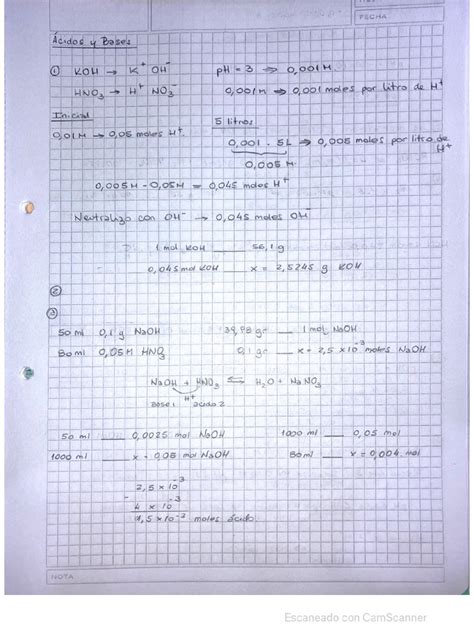 FECHA
Ácidos y Bases
① KOH → K⁺ OH⁻    pH = 3 ⇒ 0,001M
HNO₃ → H⁺ NO₃⁻    0,001M → 0,001 moles por litro de H⁺
Inicial    5 litros
0,01M → 0,05 moles H⁺.    0,001 . 5L ⇒ 0,005 moles por litro de H⁺
0,005 M
0,005M - 0,05M = 0,045 moles H⁺
Neutralizo con OH⁻ → 0,045 moles OH⁻
1 mol KOH ___ 56,1 g
0,045 mol KOH ___ x = 2,5245 g KOH
②
③
50 ml 0,1 g NaOH    39,98 gr ___ 1 mol NaOH
80 ml 0,05M HNO₃    0,1 gr ___ x = 2,5 x 10⁻³ moles NaOH
NaOH + HNO₃ ⇌ H₂O + NaNO₃
H⁺
Base 1 ácido 2
50 ml ___ 0,0025 mol NaOH    1000 ml ___ 0,05 mol
1000 ml ___ x = 0,05 mol NaOH    80 ml ___ x = 0,004 mol
2,5 x 10⁻³
-
4 x 10⁻³
1,5 x 10⁻³ moles ácido
NOTA
Escaneado con CamScanner